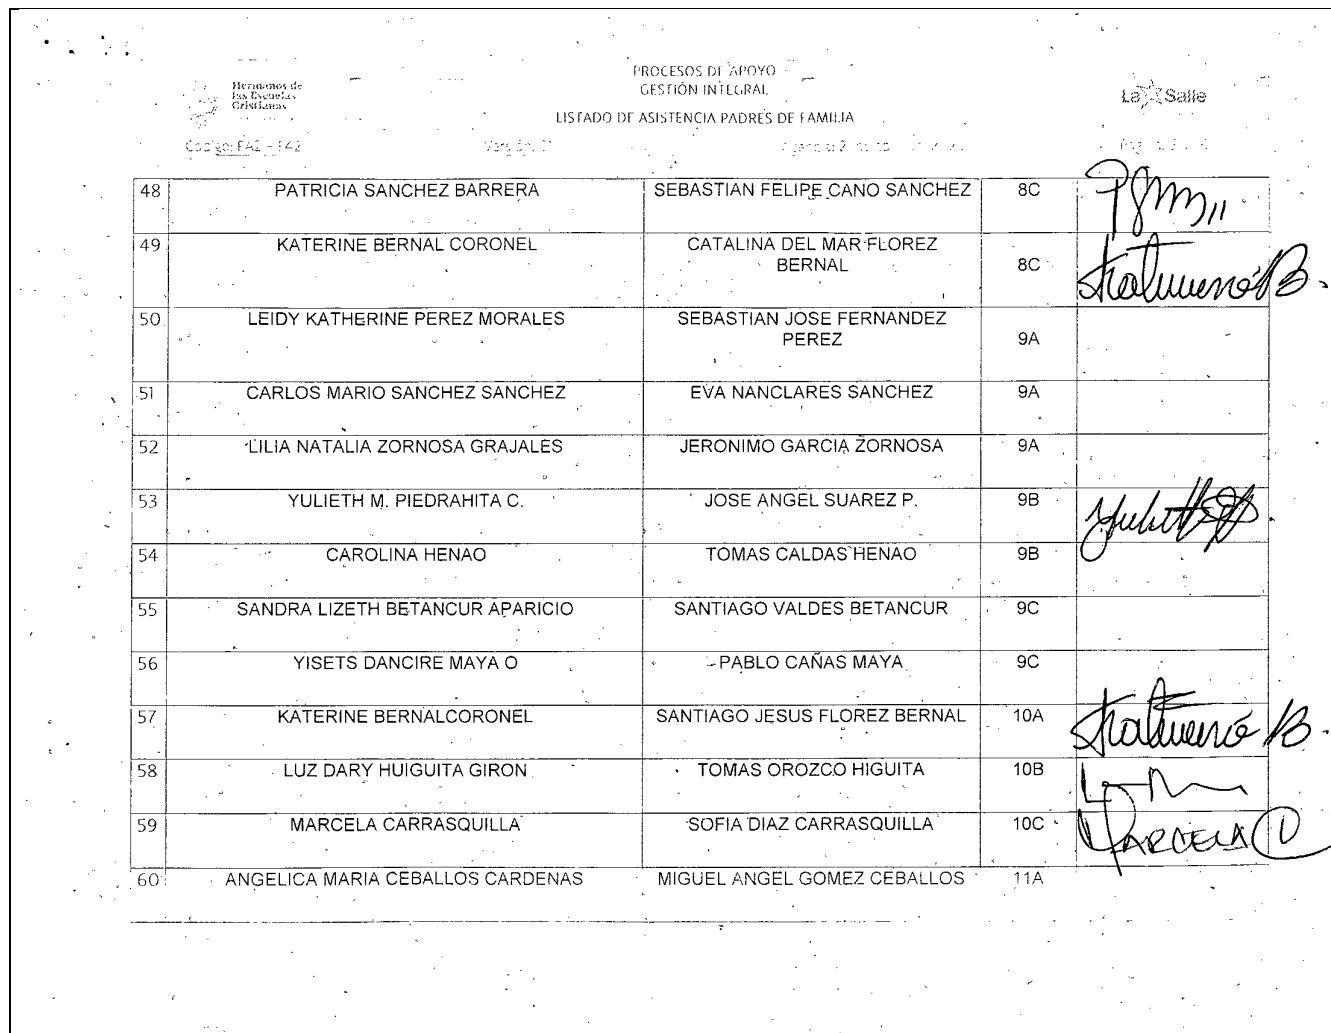 Hermanos de
las Escuelas
Cristianas
PROCESOS DE APOYO
GESTIÓN INTEGRAL
LISTADO DE ASISTENCIA PADRES DE FAMILIA
La Salle
48 PATRICIA SANCHEZ BARRERA SEBASTIAN FELIPE CANO SANCHEZ 8C
49 KATERINE BERNAL CORONEL CATALINA DEL MAR FLOREZ
BERNAL 8C
50 LEIDY KATHERINE PEREZ MORALES SEBASTIAN JOSE FERNANDEZ
PEREZ 9A
51 CARLOS MARIO SANCHEZ SANCHEZ EVA NANCLARES SANCHEZ 9A
52 LILIA NATALIA ZORNOSA GRAJALES JERONIMO GARCIA ZORNOSA 9A
53 YULIETH M. PIEDRAHITA C. JOSE ANGEL SUAREZ P. 9B
54 CAROLINA HENAO TOMAS CALDAS HENAO 9B
55 SANDRA LIZETH BETANCUR APARICIO SANTIAGO VALDES BETANCUR 9C
56 YISETS DANCIRE MAYA O PABLO CAÑAS MAYA 9C
57 KATERINE BERNALCORONEL SANTIAGO JESUS FLOREZ BERNAL 10A
58 LUZ DARY HUIGUITA GIRON TOMAS OROZCO HIGUITA 10B
59 MARCELA CARRASQUILLA SOFIA DIAZ CARRASQUILLA 10C MARCELA
60 ANGELICA MARIA CEBALLOS CARDENAS MIGUEL ANGEL GOMEZ CEBALLOS 11A